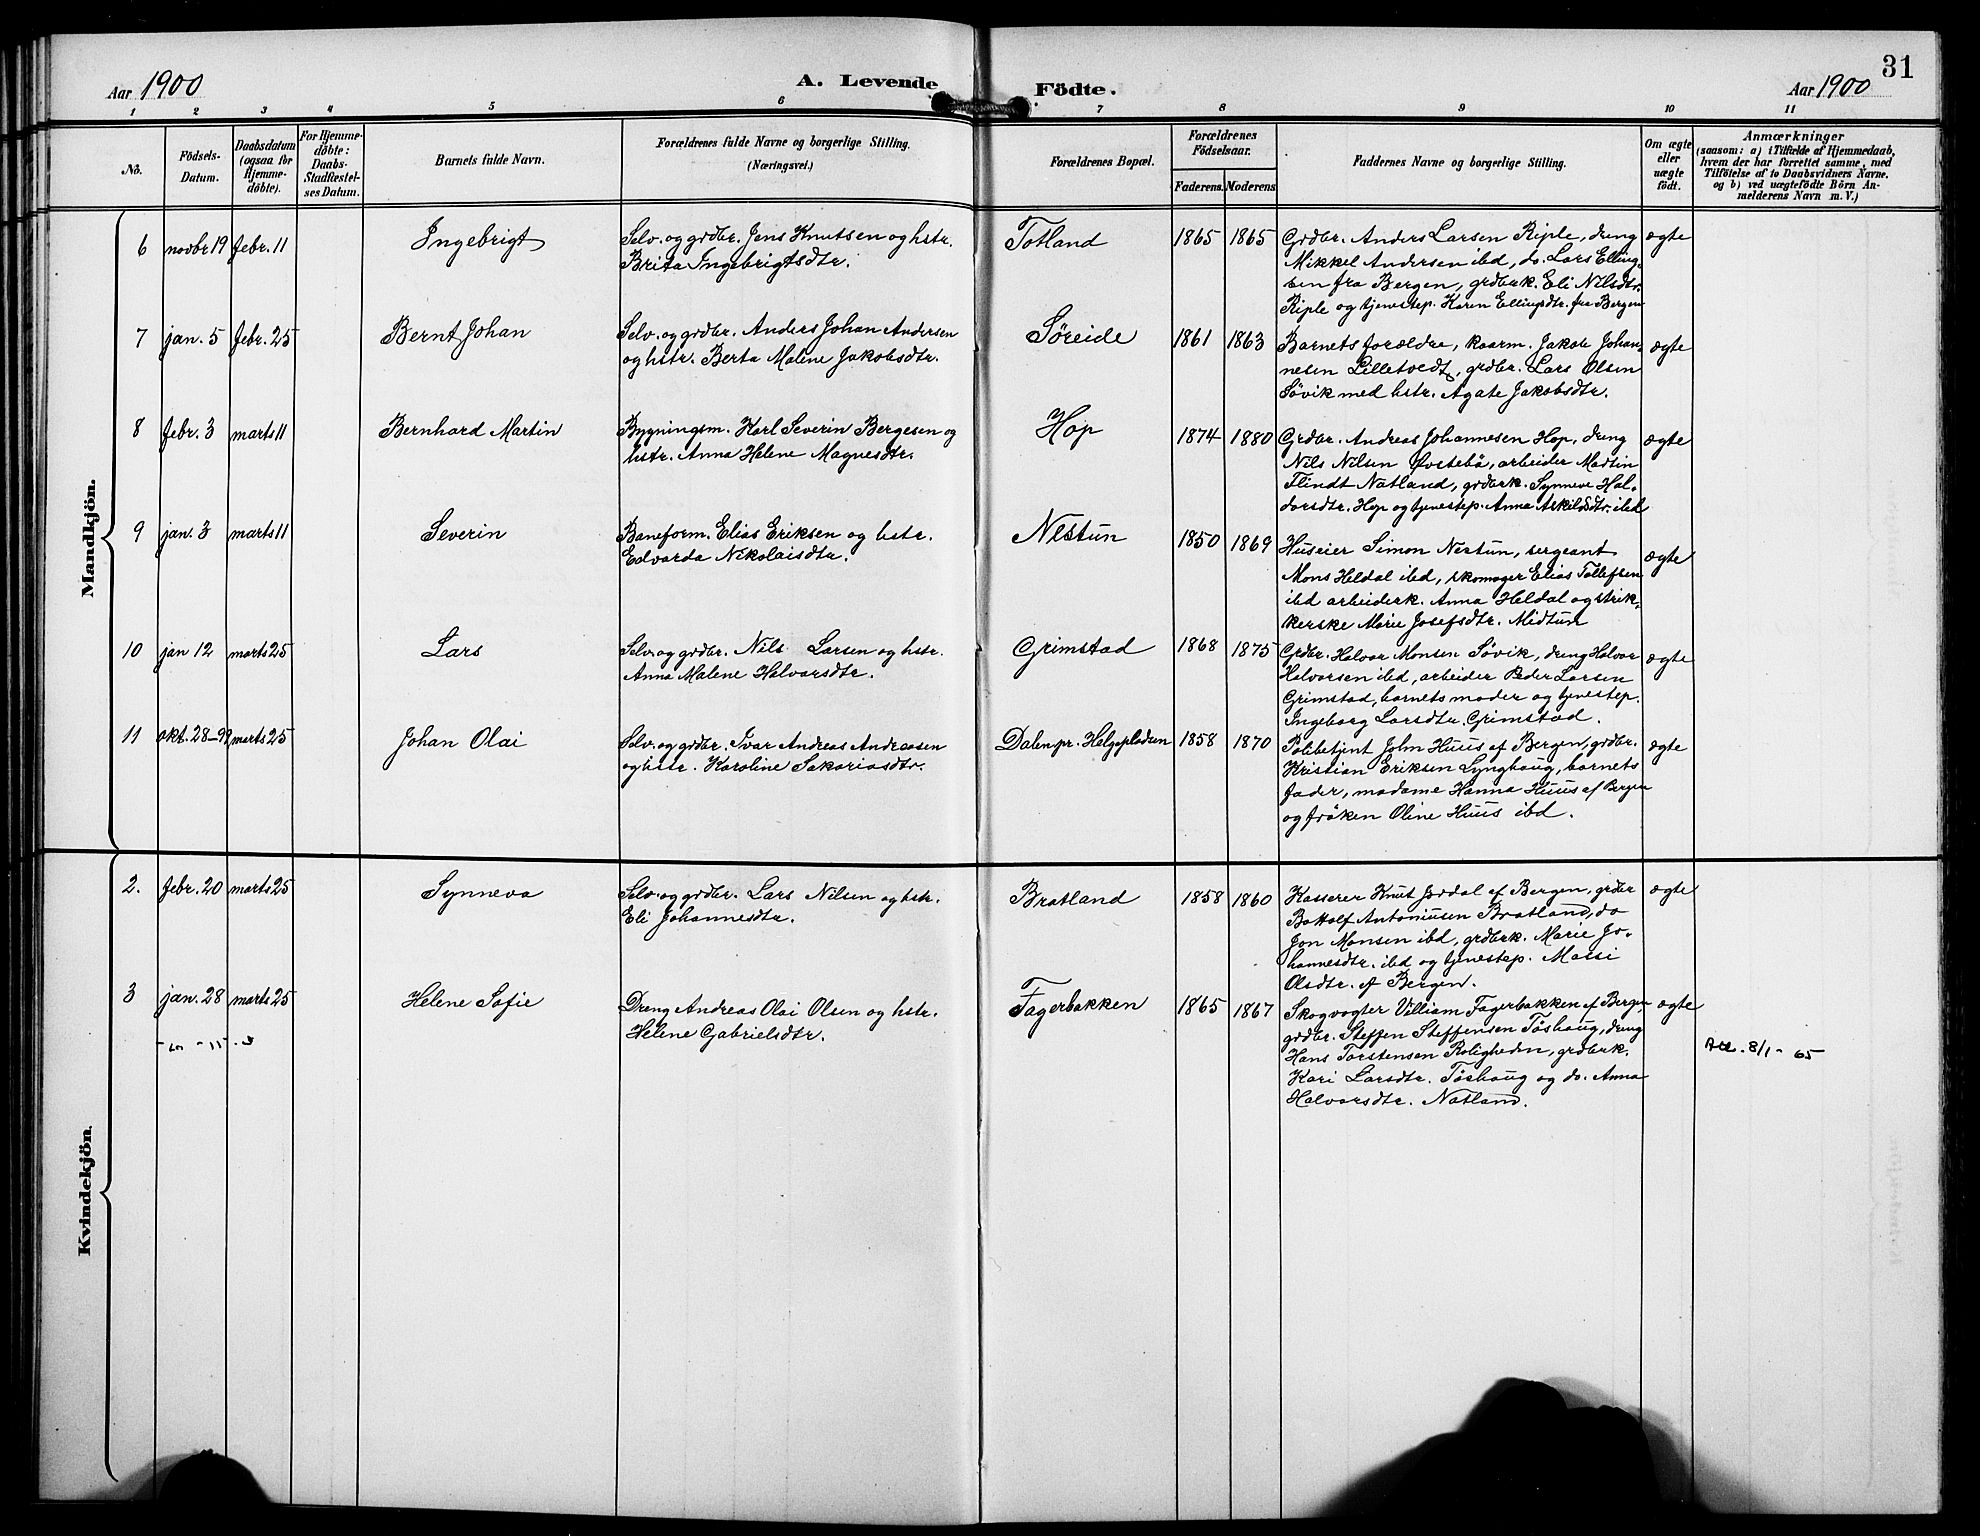 31
Aar 1900
A. Levende Födte.
Aar 1900
1 2 3 4 5 6 7 8 9 10 11
No.
Födsels-
Datum.
Daabsdatum
(ogsaa for
Hjemme-
döbte).
For Hjemme-
döbte:
Daabs-
Stadfæstel-
ses Datum.
Barnets fulde Navn.
Forældrenes fulde Navne og borgerlige Stilling.
(Næringsvei.)
Forældrenes Bopæl.
Forældrenes
Födselsaar.
Faderens. Moderens
Faddernes Navne og borgerlige Stilling.
Om ægte
eller
uægte
födt.
Anmærkninger
(saasom: a) i Tilfælde af Hjemmedaab,
hvem der har forrettet samme, med
Tilföielse af to Daabsvidners Navne.
og b) ved uægtefödte Börn An-
melderens Navn m. V.)
Mandkjön.
6 novbr 19 febr. 11 Ingebrigt
Selv. og grdbr. Jens Knutsen og hstr.
Brita Ingebrigtsdtr.
Totland 1865 1865
Grdbr. Anders Larsen Riple, dreng
Mikkel Andersen ibd, do. Lars Elling-
sen fra Bergen, grdbrk. Eli Nilsdtr.
Riple og tjenestep. Karen Ellingsdtr. fra Bergen
ægte
7 jan. 5 febr. 25 Bernt Johan
Selv. og grdbr. Anders Johan Andersen
og hstr. Berta Malene Jakobsdtr.
Søreide 1861 1863
Barnets forældre, kaarm. Jakob Johan-
nesen Lilletvedt, grdbr. Lars Olsen
Søvik med hstr. Agate Jakobsdtr.
ægte
8 febr. 3 marts 11 Bernhard Martin
Bygningsm. Karl Severin Bergesen og
hstr. Anna Helene Magnesdtr.
Hop 1874 1880
Grdbr. Andreas Johannesen Hop, dreng
Nils Nilsen Øvstebö, arbeider Martin
Flindt Natland, grdbrk. Synneve Hal-
dorsdtr. Hop og tjenestep. Anna Askildsdtr. ibd
ægte
9 jan. 3 marts 11 Severin
Baneform. Elias Eriksen og hstr.
Edvarda Nikolaisdtr.
Nestun 1850 1869
Huseier Simon Nestun, sergeant
Mons Heldal ibd, skomager Elias Tollefsen
ibd arbeiderk. Anna Heldal og strik-
kerske Marie Josefsdtr. Midtun
ægte
10 jan 12 marts 25 Lars
Selv. og grdbr. Nils Larsen og hstr.
Anna Malene Halvorsdtr.
Grimstad 1868 1875
Grdbr. Halvor Monsen Søvik, dreng Halvor
Halvorsen ibd, arbeider Peder Larsen
Grimstad, barnets moder og tjenestep.
Ingeborg Larsdtr. Grimstad.
ægte
11 okt. 28-99 marts 25 Johan Olai
Selv. og grdbr. Ivar Andreas Andreasen
og hstr. Karoline Sakariasdtr.
Dalen pr. Helgepladsen 1858 1870
Politibetjnt John Huus af Bergen, grdbr.
Kristian Eriksen Lynghaug, barnets
fader, madame Hanna Huus af Bergen
og frøken Oline Huus ibd.
ægte
Kvindekjön.
2. febr. 20 marts 25 Synneva
Selv. og grdbr. Lars Nilsen og hstr.
Eli Johannesdtr.
Bratland 1858 1860
Kasserer Knut Jordal af Bergen, grdbr
Bottolf Antoniusen Bratland, do
Jon Monsen ibd, grdbrk. Marie Jo-
hannesdtr. ibd og tjenestep. Massi
Olsdtr. af Bergen.
ægte
3 jan. 28 marts 25 Helene Sofie
Dreng Andreas Olai Olsen og hstr.
Helene Gabrielsdtr.
Fagerbakken 1865 1867
Skogvogter Villiam Fagerbakken af Bergen,
grdbr. Steffen Steffensen Tøshaug, dreng
Hans Torstensen Roligheden, grdbrk.
Kari Larsdtr. Tøshaug og do. Anna
Halvorsdtr. Natland.
ægte
8/1- 65